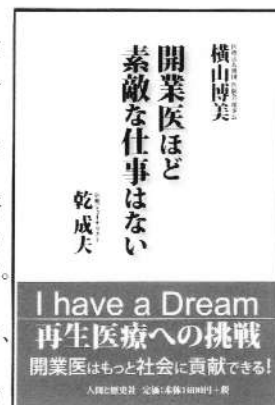 横山博美
開業医ほど
素敵な仕事はない
乾 成夫
I have a Dream
再生医療への挑戦
開業医はもっと社会に貢献できる!
人間と歴史社 定価:本体1600円+税